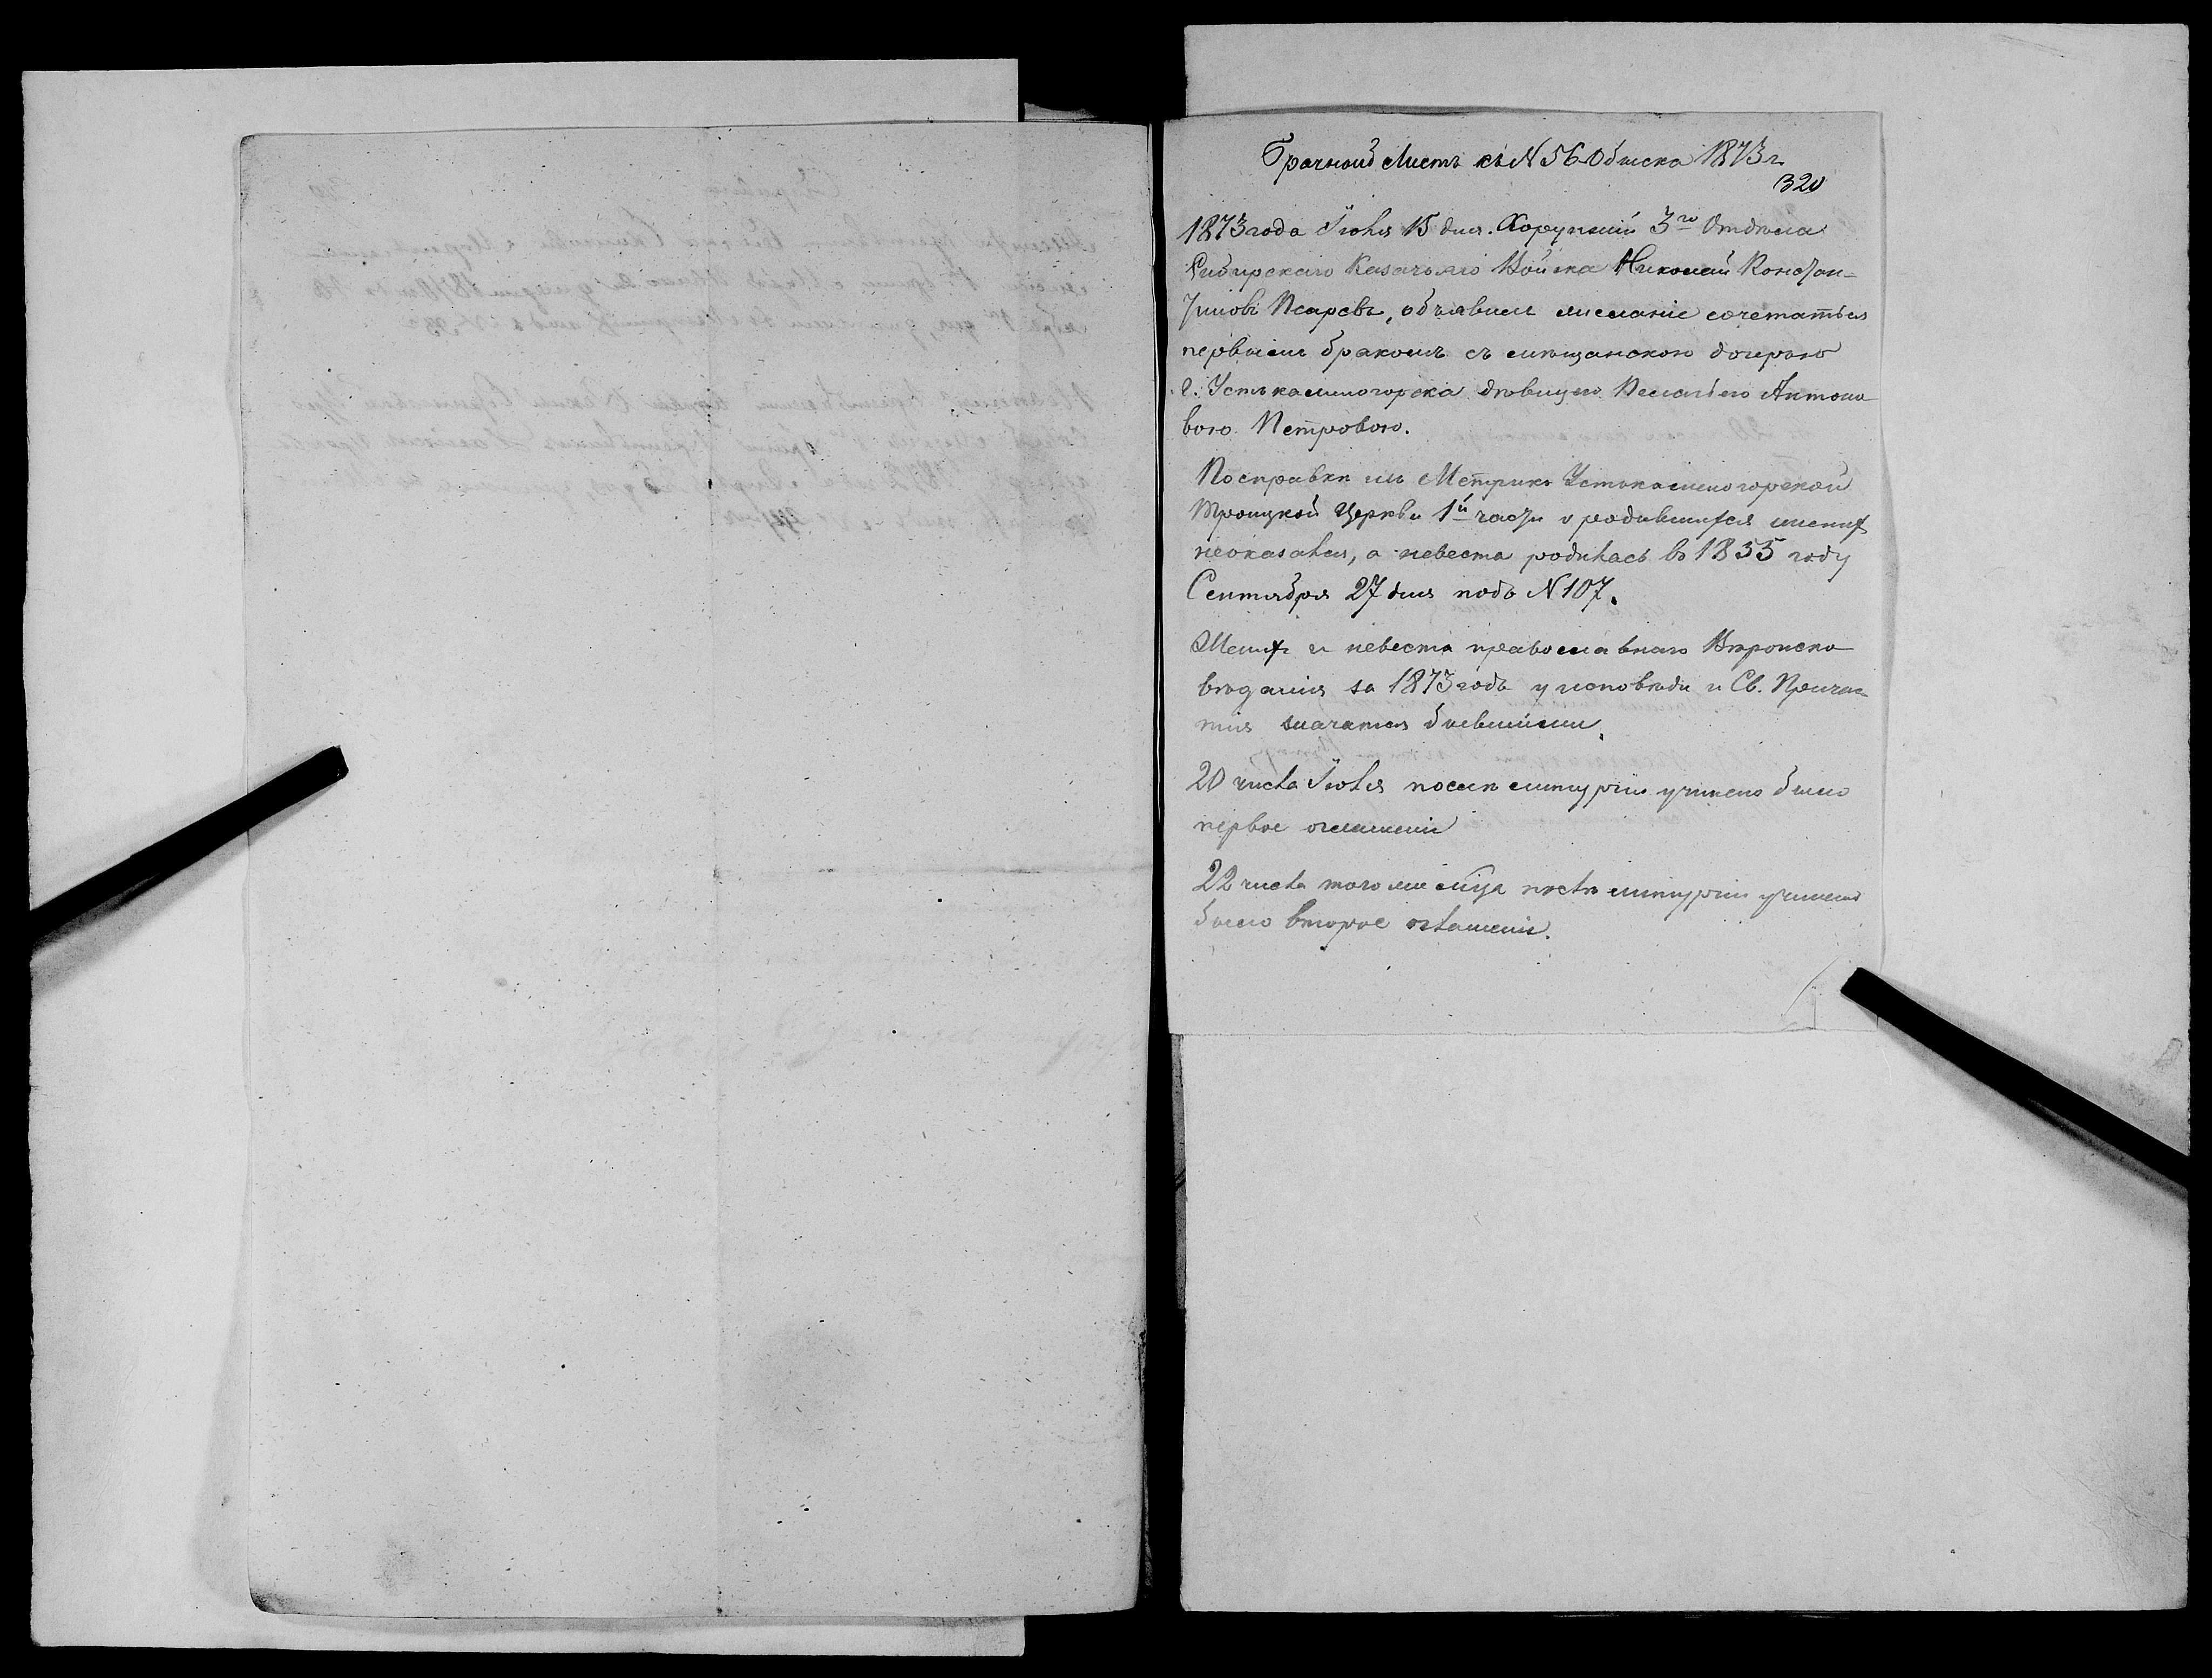 Брачный Листъ къ N 56 Обыска 1873 г.
320
1873 года Іюля 15 дня. Хорунжій 3го Отдѣла
Сибирскаго Казачьяго Войска Николай Констан-
тиновъ Псаревъ, объявилъ желаніе сочетаться
первымъ бракомъ съ мѣщанскою дочерью
г. Устькаменогорска дѣвицею Антоно
вою Петровою.
По справкѣ изъ Метрикъ Устькаменогорской
Троицкой Церкви 1й части о родившихся женихъ
неоказался, а невеста родилась въ 1855 году
Сентября 27 дня подъ N 107.
Женихъ и невеста православнаго Вѣроиспо
вѣданія за 1873 годъ у исповѣди и Св. Причас
тія значатся бывшими.
20 числа Іюля послѣ литургіи учинено было
первое оглашеніе
22 числа того мѣсяца послѣ литургіи учинено
было второе оглашеніе.